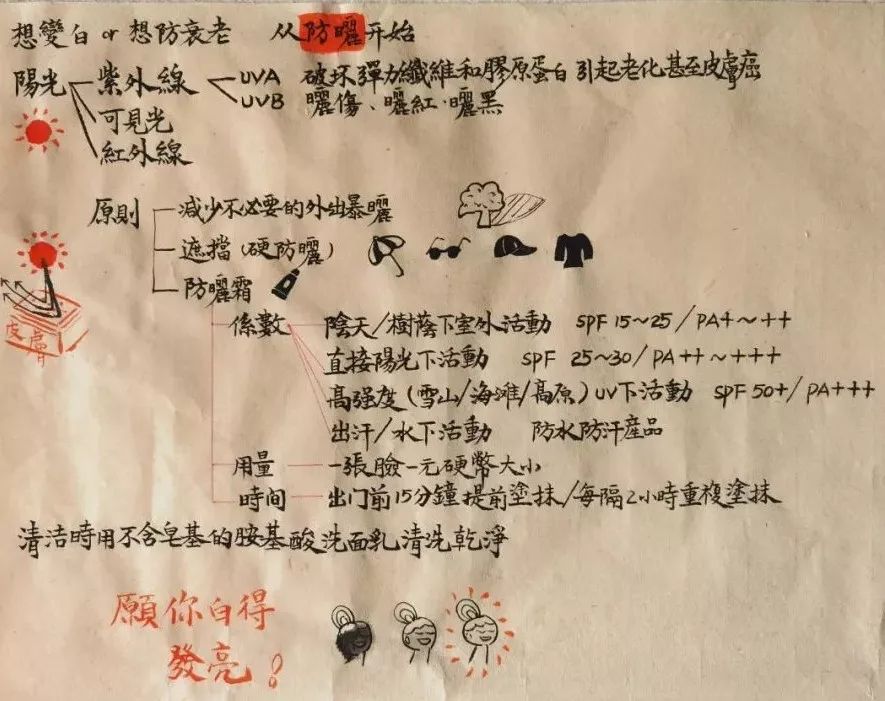 想變白 or 想防衰老 从防曬开始
陽光 紫外線 UVA 破坏弹力纖維和膠原蛋白 引起老化甚至皮膚癌
UVB 曬傷、曬紅·曬黑
可見光
紅外線
原則 减少不必要的外出暴曬
遮擋(硬防曬)
防曬霜
皮膚
係數 陰天/樹蔭下室外活動 SPF 15~25/PA+~++
直接陽光下活動 SPF 25~30/PA++~+++
高强度(雪山/海滩/高原)UV下活動 SPF 50+/PA+++
出汗/水下活動 防水防汗産品
用量 一張臉一元硬幣大小
時間 出门前15分鐘提前塗抹/每隔2小時重複塗抹
清洁時用不含皂基的胺基酸洗面乳清洗乾淨
願你白得
發亮!